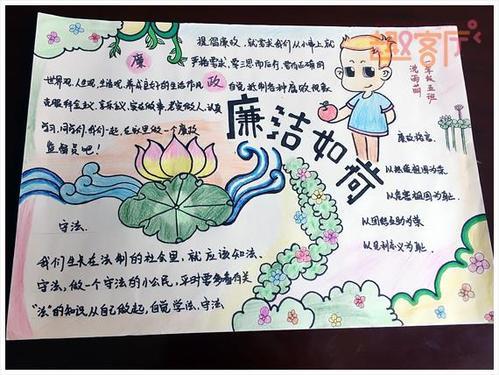 趣客厅
提倡廉政,就需求我们从小事上就
廉
严格要求,要三思而后行,要有正确的
世界观、人生观、生活观,养成良好的生活作风
政
自觉抵制各种腐败现象
克服拜金主义、享乐主义、实在做事、老实做人、认真
学习,同学们,我们一起,在这里做一个廉政
监督员吧!
廉洁如荷
年级五班
廉政格言:
从热爱祖国为荣
从危害祖国为耻
从团结互助为荣
从见利忘义为耻
守法
我们生长在法制的社会里,就应该知法、
守法,做一个守法的小公民,平时要多看有关
"法"的知识从自己做起,自觉学法、守法